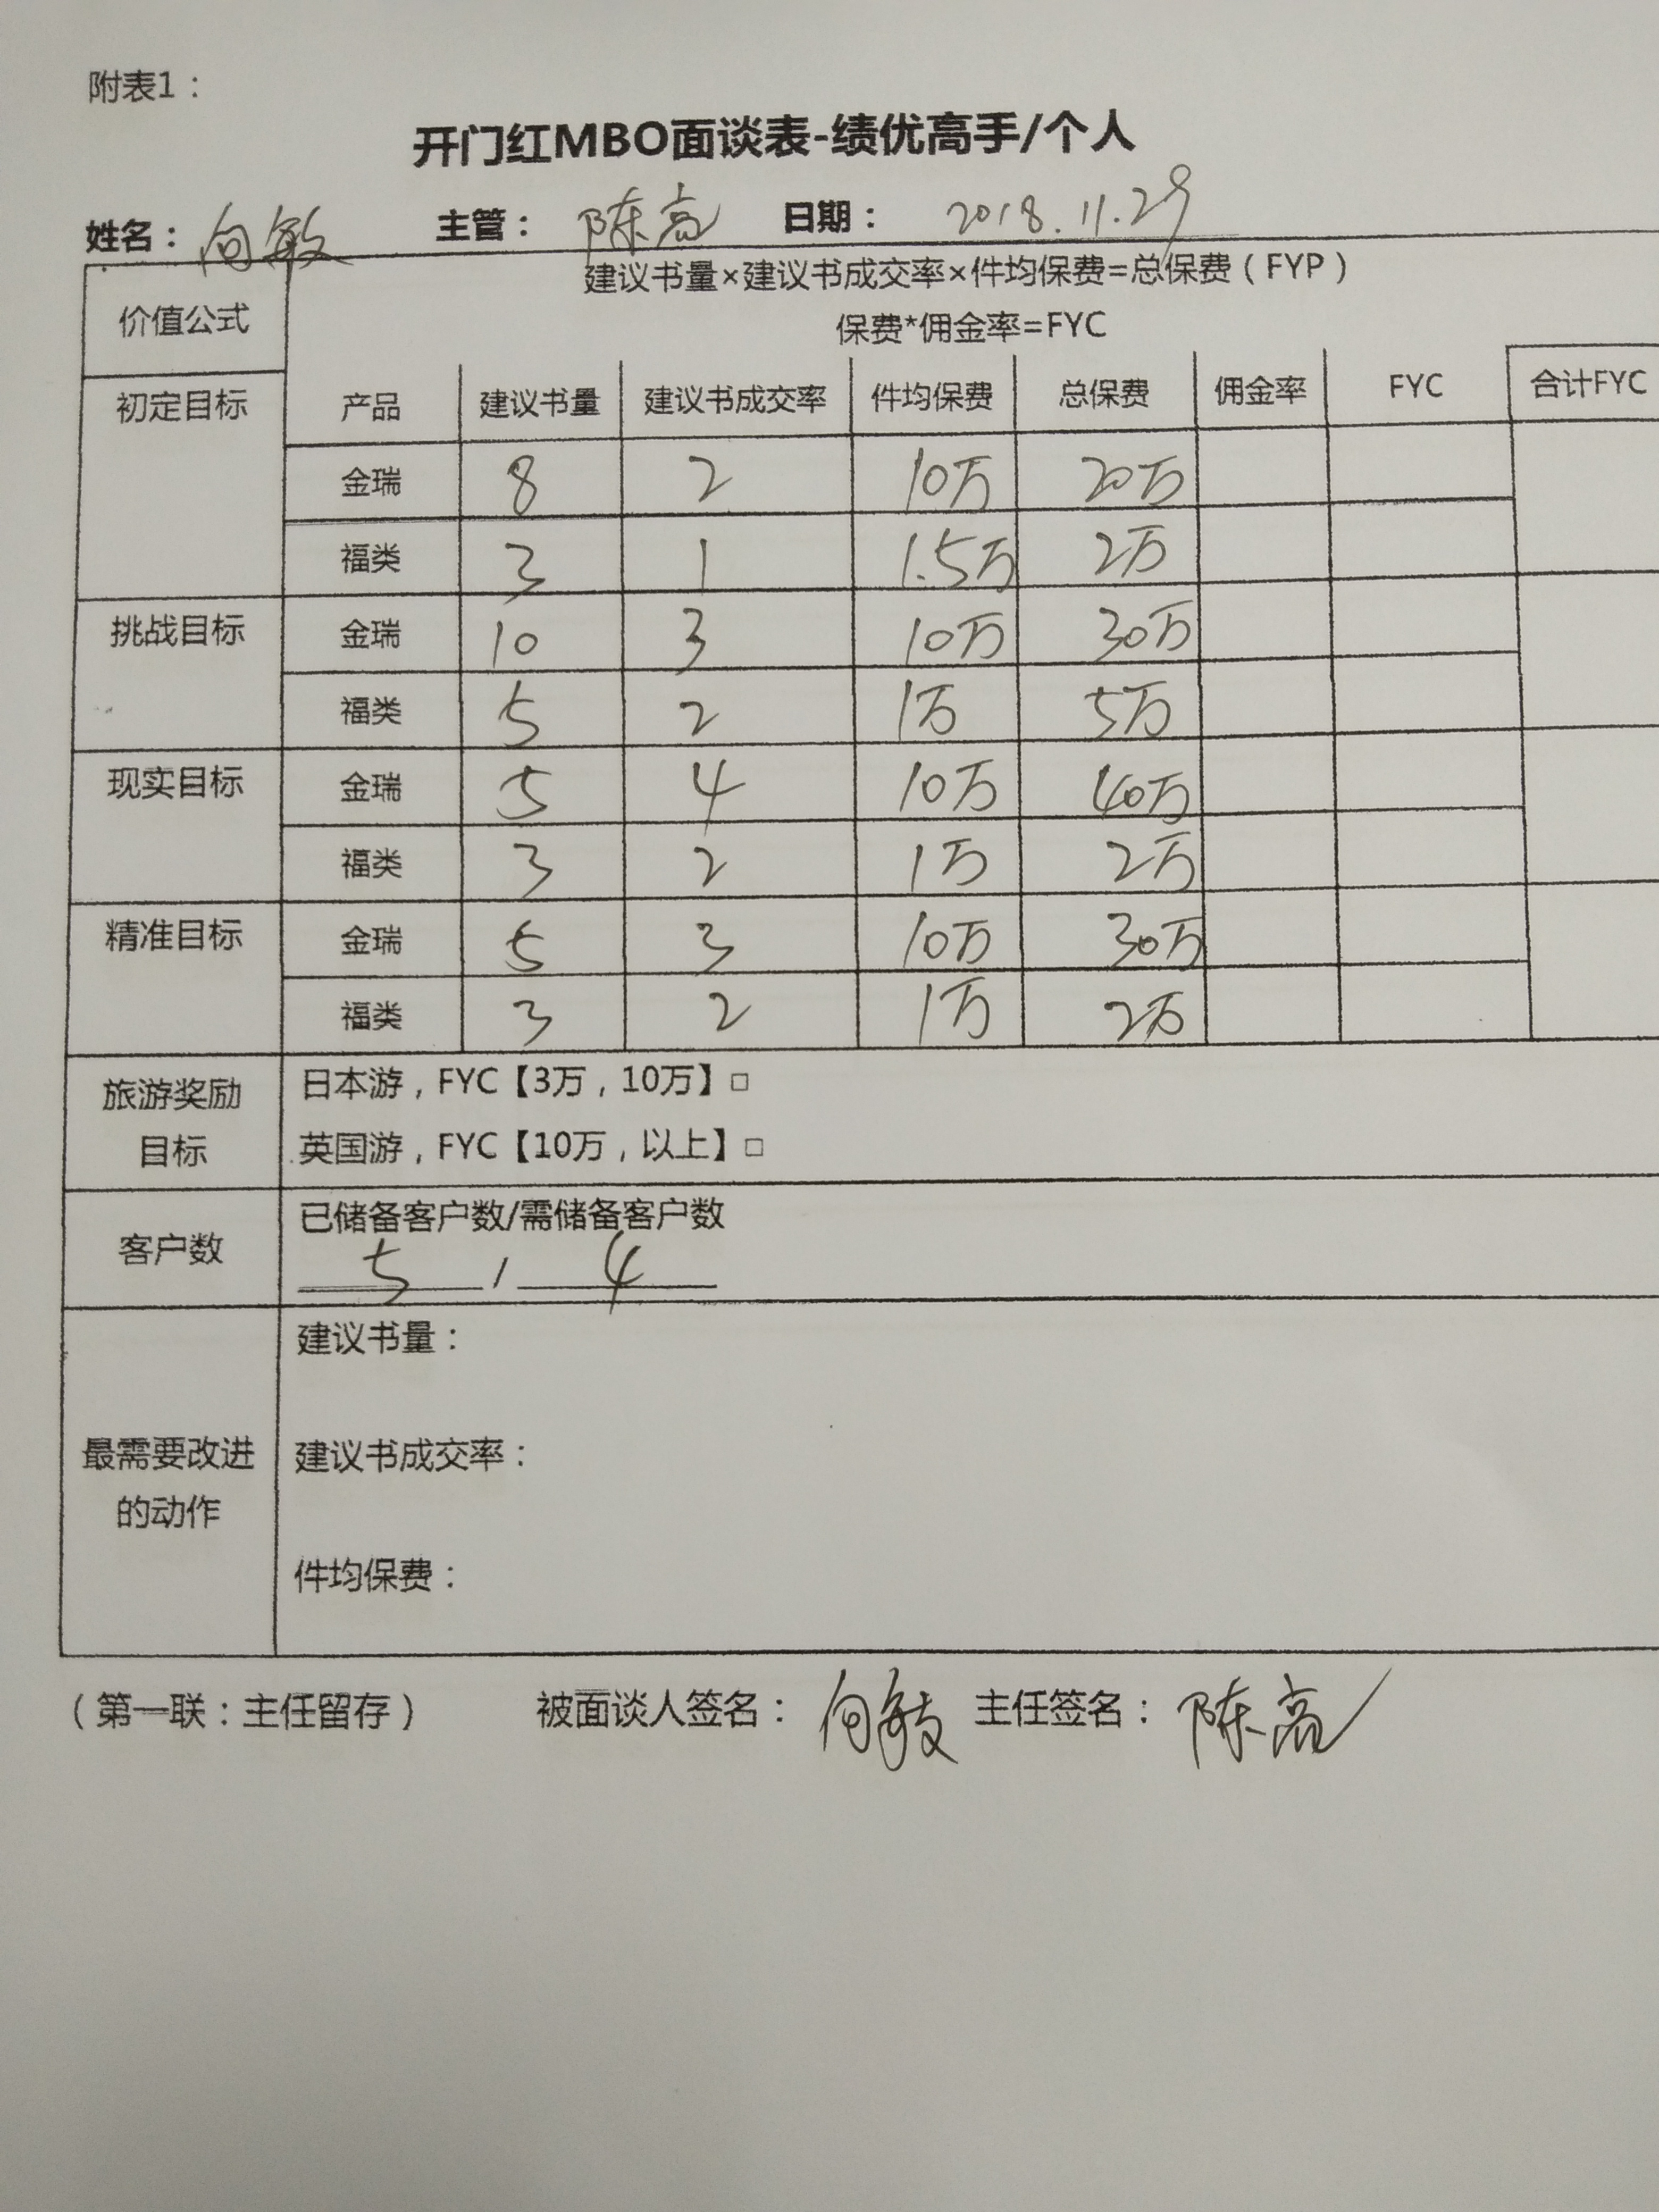 附表1：
开门红MBO面谈表-绩优高手/个人
姓名： 向敏 主管： 陈高 日期： 2018.11.29
价值公式 建议书量×建议书成交率×件均保费=总保费（FYP）
保费*佣金率=FYC
初定目标 产品 建议书量 建议书成交率 件均保费 总保费 佣金率 FYC 合计FYC
金瑞 8 2 10万 20万
福类 3 1 1.5万 2万
挑战目标 金瑞 10 3 10万 30万
福类 5 2 1万 5万
现实目标 金瑞 5 4 10万 40万
福类 3 2 1万 2万
精准目标 金瑞 5 3 10万 30万
福类 3 2 1万 2万
旅游奖励目标 日本游，FYC【3万，10万】□
英国游，FYC【10万，以上】□
客户数 已储备客户数/需储备客户数
5 / 4
最需要改进的动作 建议书量：
建议书成交率：
件均保费：
（第一联：主任留存） 被面谈人签名： 向敏 主任签名： 陈高